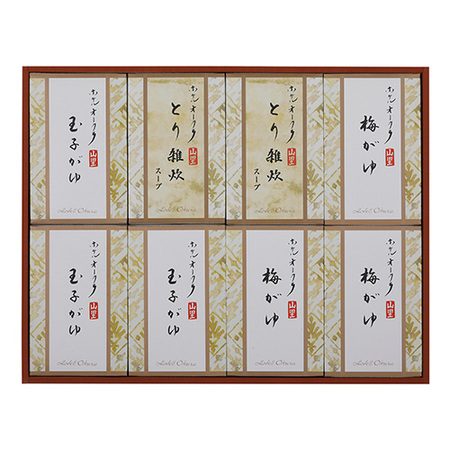 ホテルオークラ
玉子がゆ
山里
Hotel Okura
ホテルオークラ
とり雑炊
スープ
山里
ホテルオークラ
とり雑炊
スープ
山里
ホテルオークラ
梅がゆ
山里
Hotel Okura
ホテルオークラ
玉子がゆ
山里
Hotel Okura
ホテルオークラ
玉子がゆ
山里
Hotel Okura
ホテルオークラ
梅がゆ
山里
Hotel Okura
ホテルオークラ
梅がゆ
山里
Hotel Okura